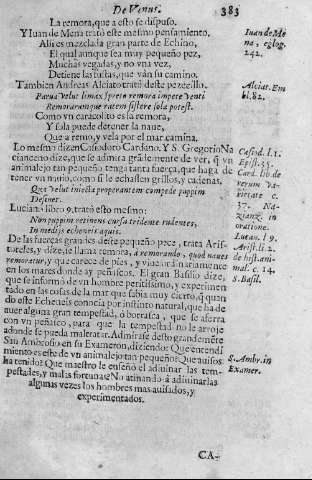 De Venus. 383
La remora, que a esto se dispuso.
Y Iuan de Mena trató este mesmo pensamiento.
Alli es mezclada gran parte de Echino,
El qual aunque sea muy pequeño pez,
Muchas vegadas, y no vna vez,
Detiene las fustas, que vàn su camino.
Tambien Andreas Alciato trató deste pezezillo.
Parua velut limax spreto remora impete venti
Remorumque ratem sistere sola potest.
Como vn caracolito es la remora,
Y sola puede detener la naue,
Que a remo, y vela por el mar camina.
Lo mesmo dizen Casiodoro Cardano, Y S. Gregorio Na
cianceno dize, que se admira grãdemente de ver, q̃ vn
animalejo tan pequeño tenga tanta fuerça, que haga de
tener vn nauio, como si le echassen grillos, y cadenas,
Qui velut iniecta properantem compede puppim
Definet.
Luciano libro 9. trató esto mesmo:
Non puppim retinens curso tridente rudentes,
In medijs echeneis aquis.
De las fuerças grandes deste pequeño pece, trata Aris-
toteles, y dize, se llama remora, à remorando, quod naues
remoretur, y que carece de pies, y viue ordinariamente
en los mares donde ay peñascos. El gran Basilio dize,
que se informó de vn hombre peritissimo, y experimen
tado en las cosas de la mar que sabia muy cierto, q̃ quan
do este Echeneis conocia por instinto natural, que ha de
auer alguna gran tempestad, ò borrasca, que se aferra
con vn peñasco, para que la tempestad no le arroje
adonde se pueda maltratar. Admirase desto grandemẽte
San Ambrosio en su Exameron, diziendo: Que entendi
miento es este de vn animalejo tan pequeño? Que auisos
ha tenido? Que maestro le enseñó el adiuinar las tem-
pestades, y malas fortunas? No atinando à adiuinarlas
algunas vezes los hombres mas auisados, y
experimentados.
CA-
Iuan de Me
na, eglog.
242.
Alciat. Em
bl. 82.
Casiod. l. 1.
Epist. 35.
Card. lib. de
rerum va-
rietate c.
37. Na-
zianz. in
oratione.
Lucan. l 9.
Arist. li 2.
de hist. ani-
mal. c. 14.
S. Basil.
S. Ambr. in
Examer.